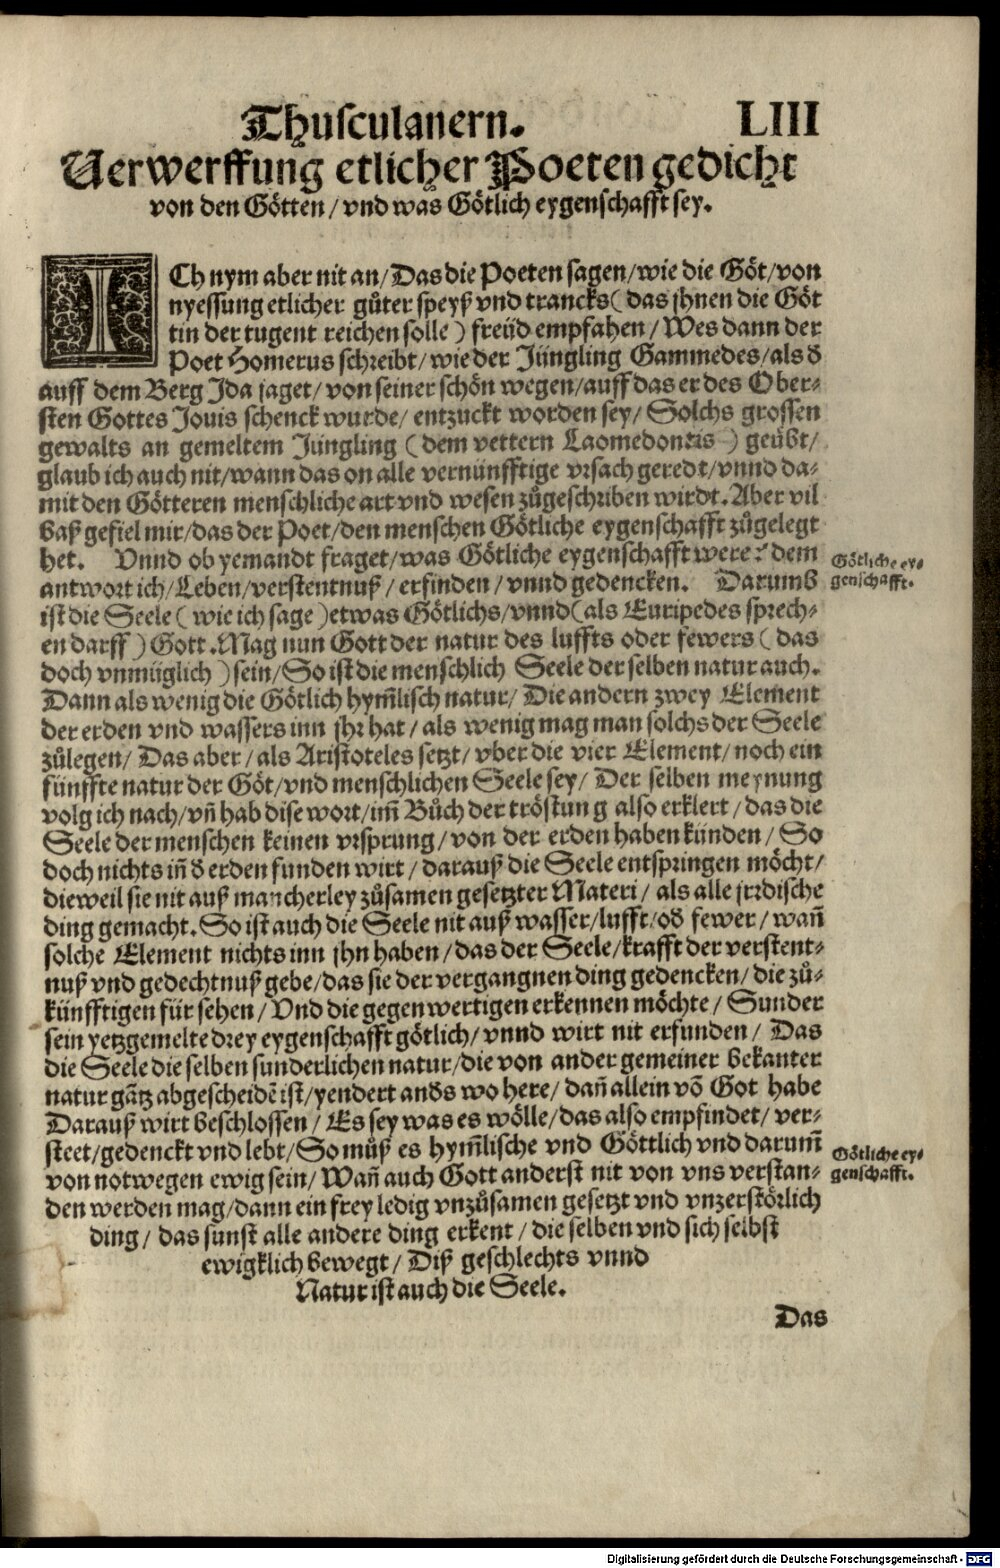 Thusculanern. LIII
Verwerffung etlicher Poeten gedicht
von den Götten / vnd was Götlich eygenschafft sey.
ICh nym aber nit an / Das die Poeten sagen / wie die Göt / von
nyessung etlicher gůter speyß vnd trancks ( das jhnen die Göt
tin der tugent reichen solle ) freüd empfahen / Wes dann der
Poet Homerus schreibt / wie der Jüngling Gammedes / als d̕
auff dem Berg Ida jaget / von seiner schön wegen / auff das er des Ober-
sten Gottes Jouis schenck wurde / entzuckt worden sey / Solchs grossen
gewalts an gemeltem Jüngling ( dem vettern Laomedontis ) geübt /
glaub ich auch nit / wann das on alle vernünfftige vrsach geredt / vnnd da-
mit den Götteren menschliche art vnd wesen zůgeschriben wirdt. Aber vil
baß gefiel mir / das der Poet / den menschen Götliche eygenschafft zůgelegt
het. Vnnd ob yemandt fraget / was Götliche eygenschafft were? dem
Götliche ey-
genschafft.
antwort ich / Leben / verstentnuß / erfinden / vnnd gedencken. Darumb
ist die Seele ( wie ich sage ) etwas Götlichs / vnnd ( als Euripedes sprech-
en darff ) Gott. Mag nun Gott der natur des luffts oder fewers ( das
doch vnmüglich ) sein / So ist die menschlich Seele der selben natur auch.
Dann als wenig die Götlich hym̄lisch natur / Die andern zwey Element
der erden vnd wassers inn jhr hat / als wenig mag man solchs der Seele
zůlegen / Das aber / als Aristoteles setzt / vber die vier Element / noch ein
fünffte natur der Göt / vnd menschlichen Seele sey / Der selben meynung
volg ich nach / vn̄ hab dise wort / im̄ Bůch der tröstung also erklert / das die
Seele der menschen keinen vrsprung / von der erden haben künden / So
doch nichts in̄ d̕ erden funden wirt / darauß die Seele entspringen möcht /
dieweil sie nit auß mancherley zůsamen gesetzter Materi / als alle jrrdische
ding gemacht. So ist auch die Seele nit auß wasser / lufft / od̕ fewer / wan̄
solche Element nichts inn jhn haben / das der Seele / krafft der verstent-
nuß vnd gedechtnuß gebe / das sie der vergangnen ding gedencken / die zů-
künfftigen für sehen / Vnd die gegenwertigen erkennen möchte / Sunder
sein yetzgemelte drey eygenschafft götlich / vnnd wirt nit erfunden / Das
die Seele die selben sunderlichen natur / die von ander gemeiner bekanter
natur gātz abgescheidē ist / yendert and̕s wo here / dan̄ allein vō Got habe
Darauß wirt beschlossen / Es sey was es wölle / das also empfindet / ver-
steet / gedenckt vnd lebt / So můß es hym̄lische vnd Göttlich vnd darum̄
Götliche ey-
genschafft.
von notwegen ewig sein / Wan̄ auch Gott anderst nit von vns verstan-
den werden mag / dann ein frey ledig vnzůsamen gesetzt vnd vnzerstörlich
ding / das sunst alle andere ding erkent / die selben vnd sich selbst
ewigklich bewegt / Diß geschlechts vnnd
Natur ist auch die Seele.
Das
Digitalisierung gefördert durch die Deutsche Forschungsgemeinschaft - DFG